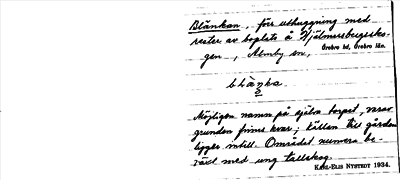 Blänkan, förr uthuggning med
rester av boplats å Hjälmarsbergssko-
gen, Almby sn, Örebro hd, Örebro län.
blàŋka
Möjligen namn på själva torpet, varav
grunden finnes kvar; källan till gården
ligger intill. Området numera be-
växt med ung tallskog.
KARL-ELIS NYSTEDT 1934.